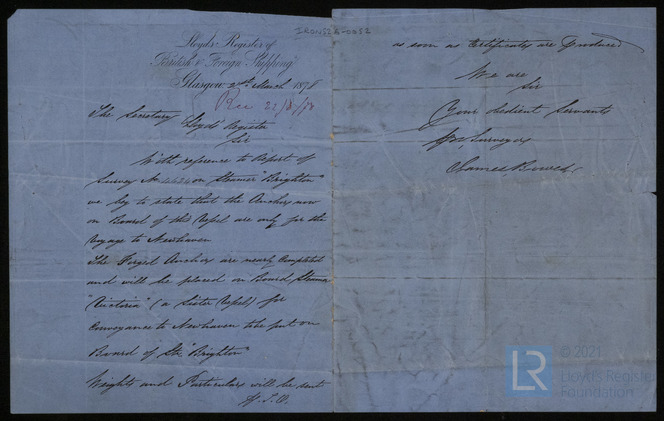 IRON528-0052
Lloyd's Register of
British & Foreign Shipping
Glasgow 21st March 1878
Rec 22/3/78
The Secretary
Lloyds Register
Sir
With reference to Report of
Survey No on Steamer "Brighton"
we beg to state that the Anchors now
on Board of this Vessel are only for the
Voyage to Newhaven
The Forged Anchors are nearly Completed
and will be placed on Board Steamer
"Victoria" (a Sister Vessel) for
Conveyance to Newhaven to be put on
Board of Str "Brighton"
Weights and Particulars will be sent
P.T.O.
as soon as Certificates are Produced
We are
Sir
Your obedient Servants
for Surveyors
James
LR
© 2021
Lloyd's Register
Foundation